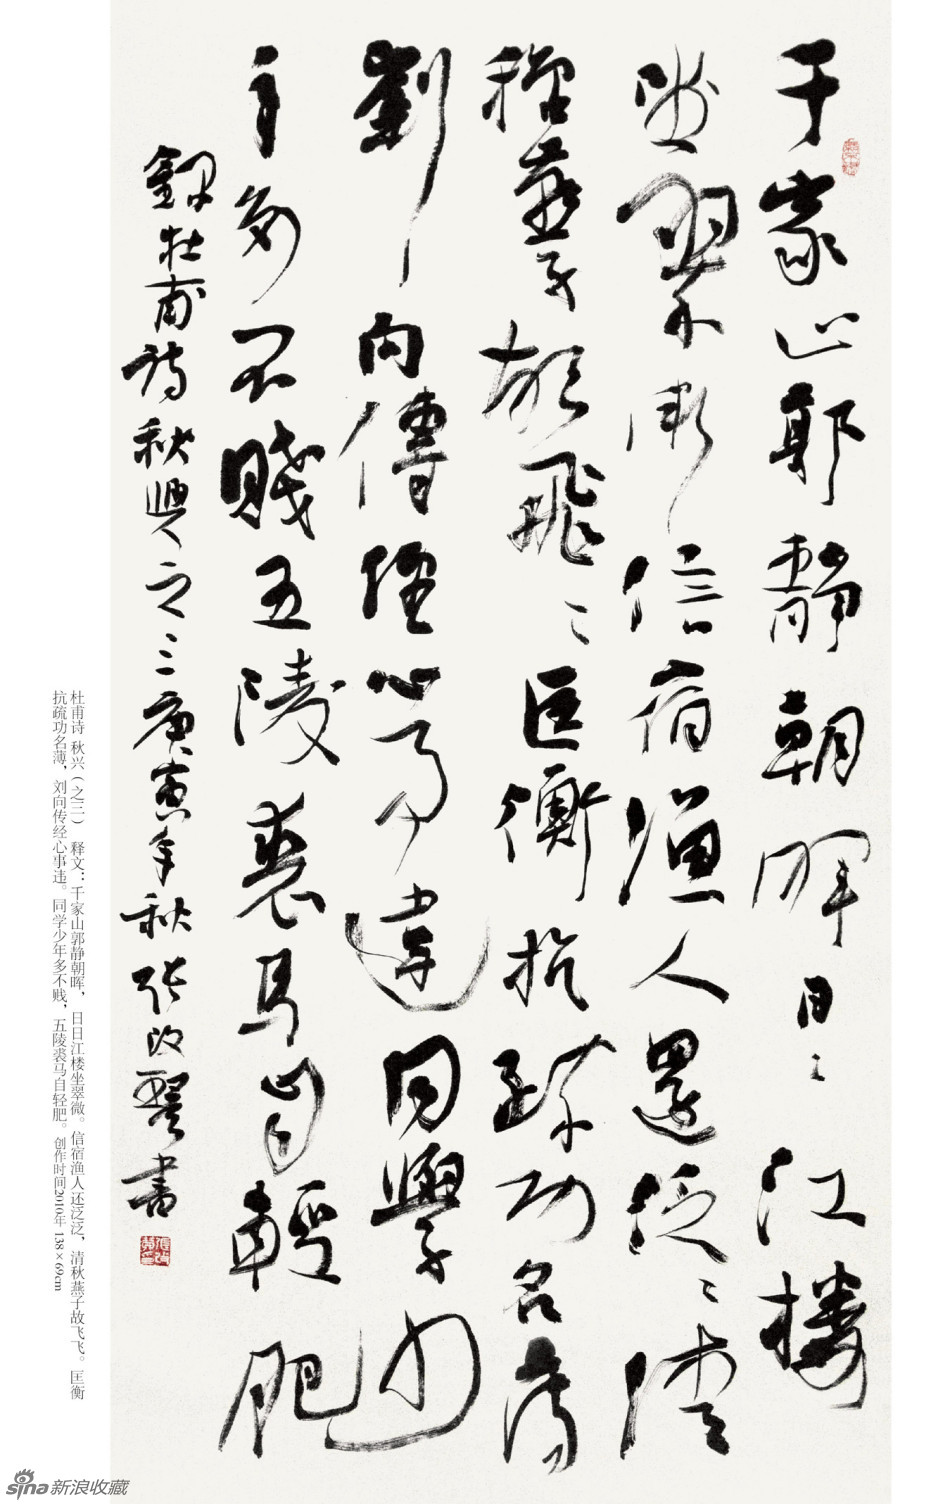 千家山郭靜朝暉日〻江樓
坐翠微信宿漁人還泛〻清
秋燕子故飛〻匡衡抗疏功名薄
劉向傳經心事違同學少
年多不賤五陵裘馬自輕肥
錄杜甫詩秋興之三庚寅年秋張改琴書
杜甫诗 秋兴（之三） 释文：千家山郭静朝晖，日日江楼坐翠微。信宿渔人还泛泛，清秋燕子故飞飞。匡衡
抗疏功名薄，刘向传经心事违。同学少年多不贱，五陵裘马自轻肥。 创作时间2010年 138×69cm
sina新浪收藏